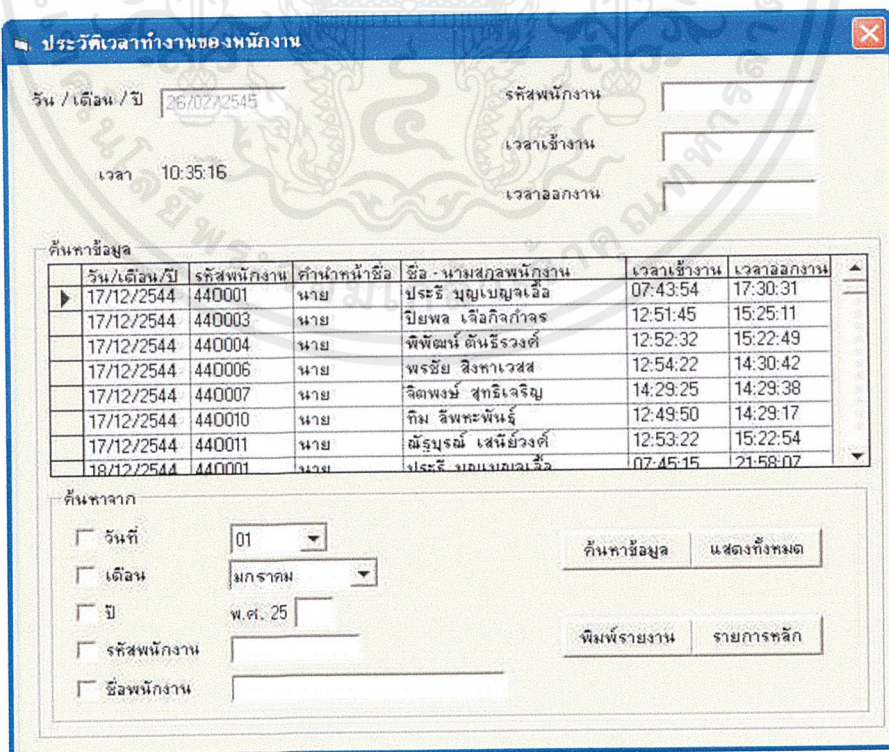 ประวัติเวลาทำงานของพนักงาน
วัน / เดือน / ปี 26/02/2545 รหัสพนักงาน
เวลาเข้างาน
เวลา 10:35:16
เวลาออกงาน
ค้นหาข้อมูล
วัน/เดือน/ปี รหัสพนักงาน คำนำหน้าชื่อ ชื่อ - นามสกุลพนักงาน เวลาเข้างาน เวลาออกงาน
17/12/2544 440001 นาย ประธี บุญเบญจเอื้อ 07:43:54 17:30:31
17/12/2544 440003 นาย ปิยพล เจือกิจกำจร 12:51:45 15:25:11
17/12/2544 440004 นาย พิพัฒน์ ตันธีรวงศ์ 12:52:32 15:22:49
17/12/2544 440006 นาย พรชัย สิงหาเวสส 12:54:22 14:30:42
17/12/2544 440007 นาย จิตพงษ์ สุทธิเจริญ 14:29:25 14:29:38
17/12/2544 440010 นาย ทิม ลีพหะพันธุ์ 12:49:50 14:29:17
17/12/2544 440011 นาย ณัฐบูรณ์ เสนีย์วงศ์ 12:53:22 15:22:54
18/12/2544 440001 นาย ประธี บุญเบญจเอื้อ 07:45:15 21:58:07
ค้นหาจาก
วันที่ 01
ค้นหาข้อมูล แสดงทั้งหมด
เดือน มกราคม
ปี พ.ศ. 25
พิมพ์รายงาน รายการหลัก
รหัสพนักงาน
ชื่อพนักงาน